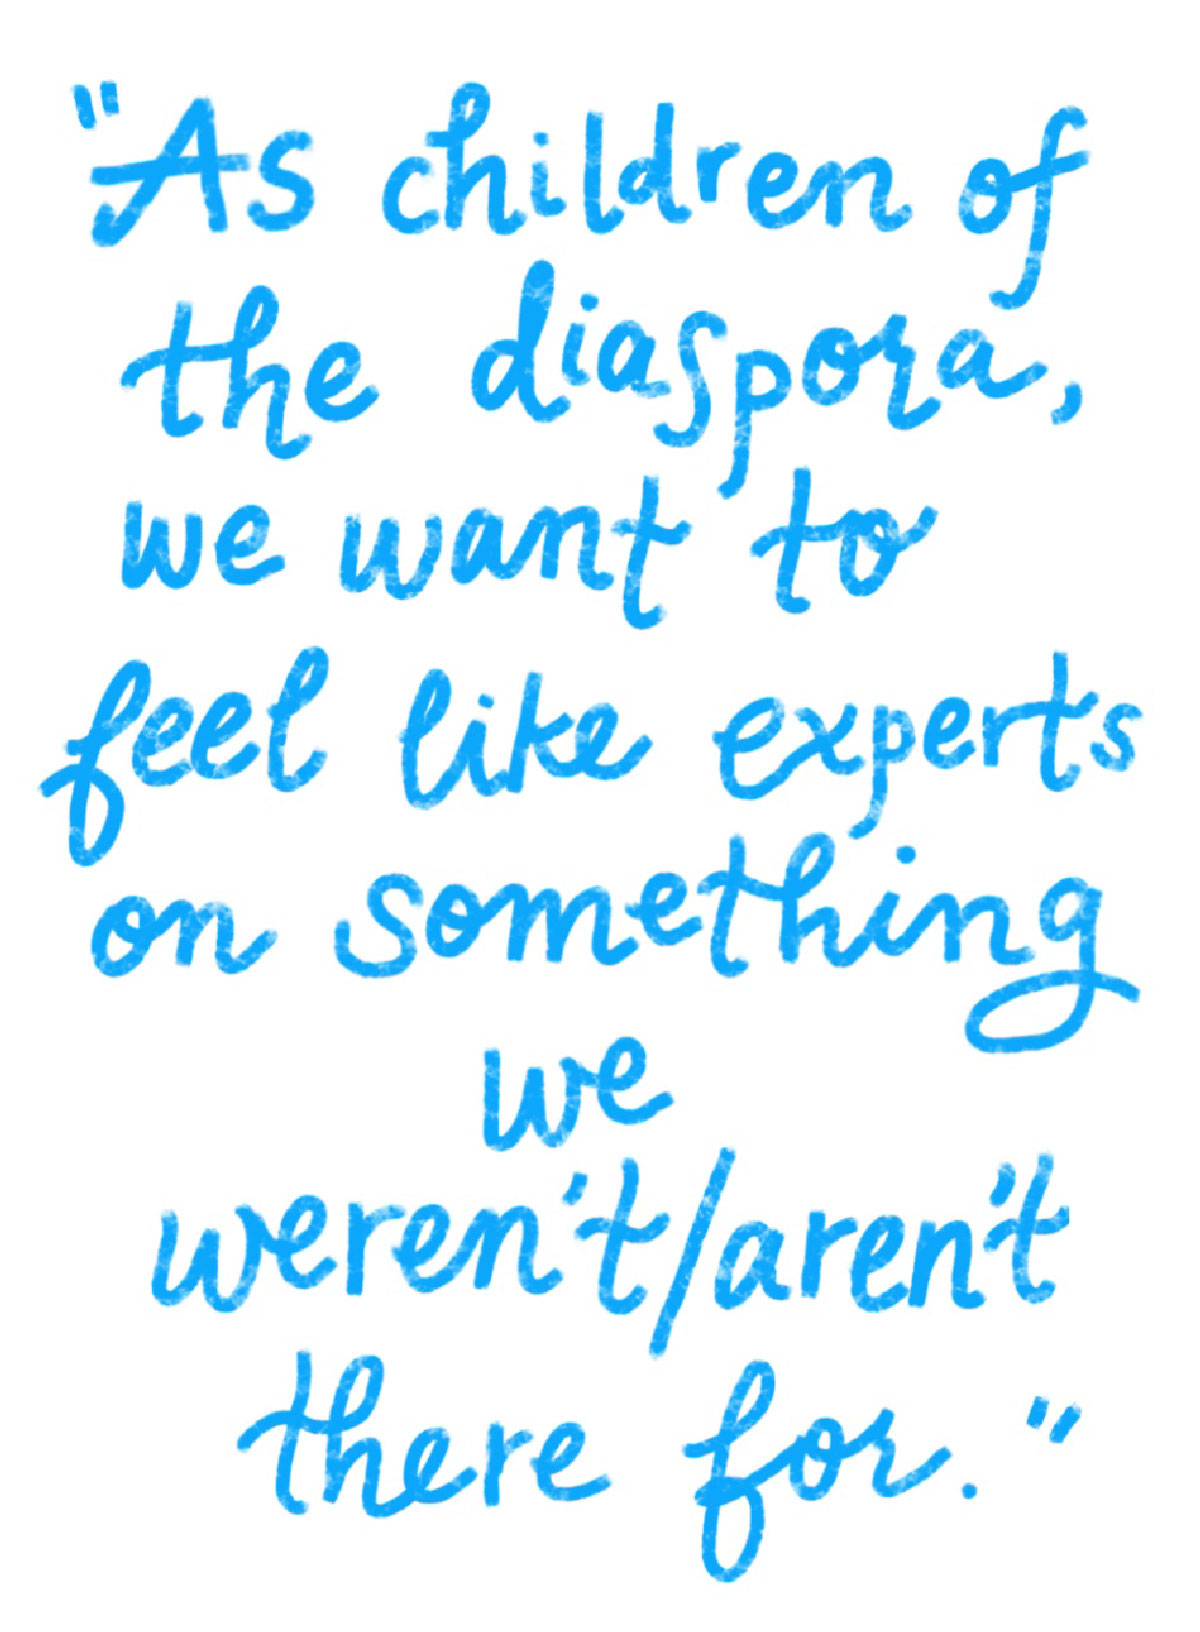 "As children of
the diaspora,
we want to
feel like experts
on something
we
weren't/aren't
there for."